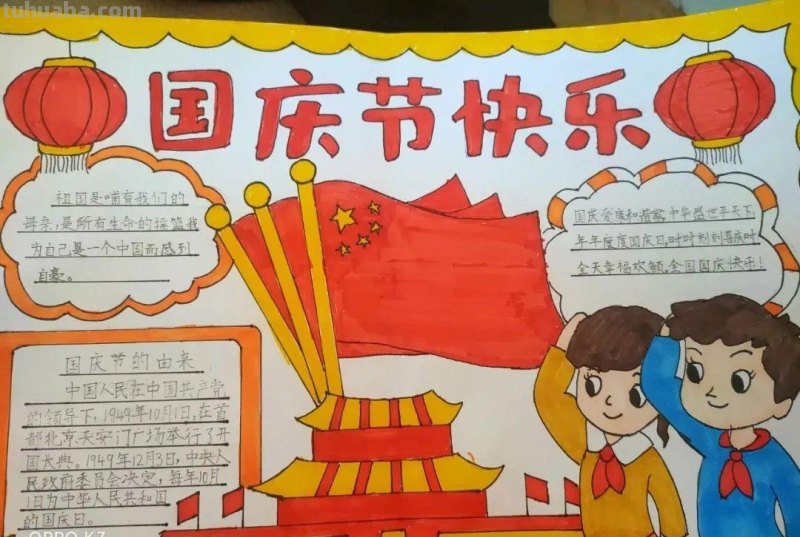 tuhuaba.com
国庆节快乐
祖国是哺育我们的
母亲,是所有生命的摇篮我
为自己是一个中国而感到
自豪。
国庆爱康和 中华盛世平天下
年年度度国庆日,时时刻刻喜庆时
全天幸福欢颜,全国国庆快乐!
国庆节的由来
中国人民在中国共产党
的领导下,1949年10月1日,在首
都北京天安门广场举行了开
国大典。1949年12月3日,中央人
民政府委员会决定,每年10月
1日为中华人民共和国
的国庆日。
OPPO K7